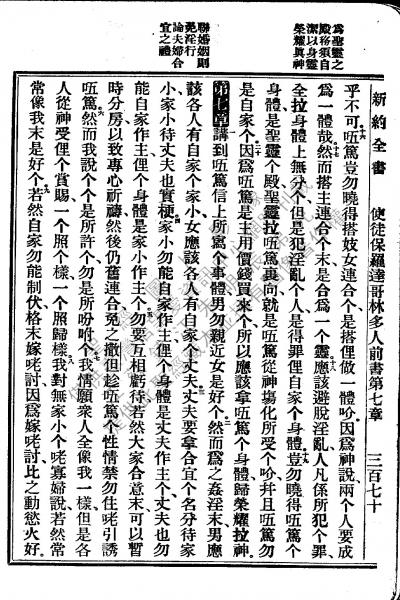 新約全書　使徒保羅達哥林多人前書第七章　三百七十
爲聖靈之
殿務須自
潔以身靈
榮耀眞神
聯婚姻則
免淫行
論夫婦合
宜之禮
乎不可㕶篤豈勿曉得搭妓女連合个是搭俚做一體吩因爲神說兩个人要成
爲一體哉然而搭主連合个末是合爲一个靈應該避脫淫亂人凡係所犯个罪
全拉身體上無分个但是犯淫亂个人是得罪俚自家个身體豈勿曉得㕶篤个
身體是聖靈个殿聖靈拉㕶篤裏向就是㕶篤從神
所受个吩幷且㕶篤勿
是自家个因爲㕶篤是主用價錢買來个所以應該拿㕶篤个身體歸榮耀拉神
第七章講到㕶篤信上所寫个事體男勿親近女是好个然而爲之姦淫末男應
該各人有自家个家小女應該各人有自家个丈夫丈夫要拿合宜个名分待家
小家小待丈夫也實梗家小勿能自家作主俚个身體是丈夫作主个丈夫也勿
能自家作主俚个身體是家小作主个勿要互相虧待若然大家合意末可以暫
時分房以致專心祈禱然後仍舊連合免之撒但趁㕶篤个性情禁勿住咾引誘
㕶篤然而我說个个是所許个勿是所吩咐个我情願衆人全像我一樣但是各
人從神受俚个賞賜一个照个樣一个照歸樣我對無家小个咾寡婦說若然常
常像我末是好个若然自家勿能制伏格末嫁咾討因爲嫁咾討比之動慾火好